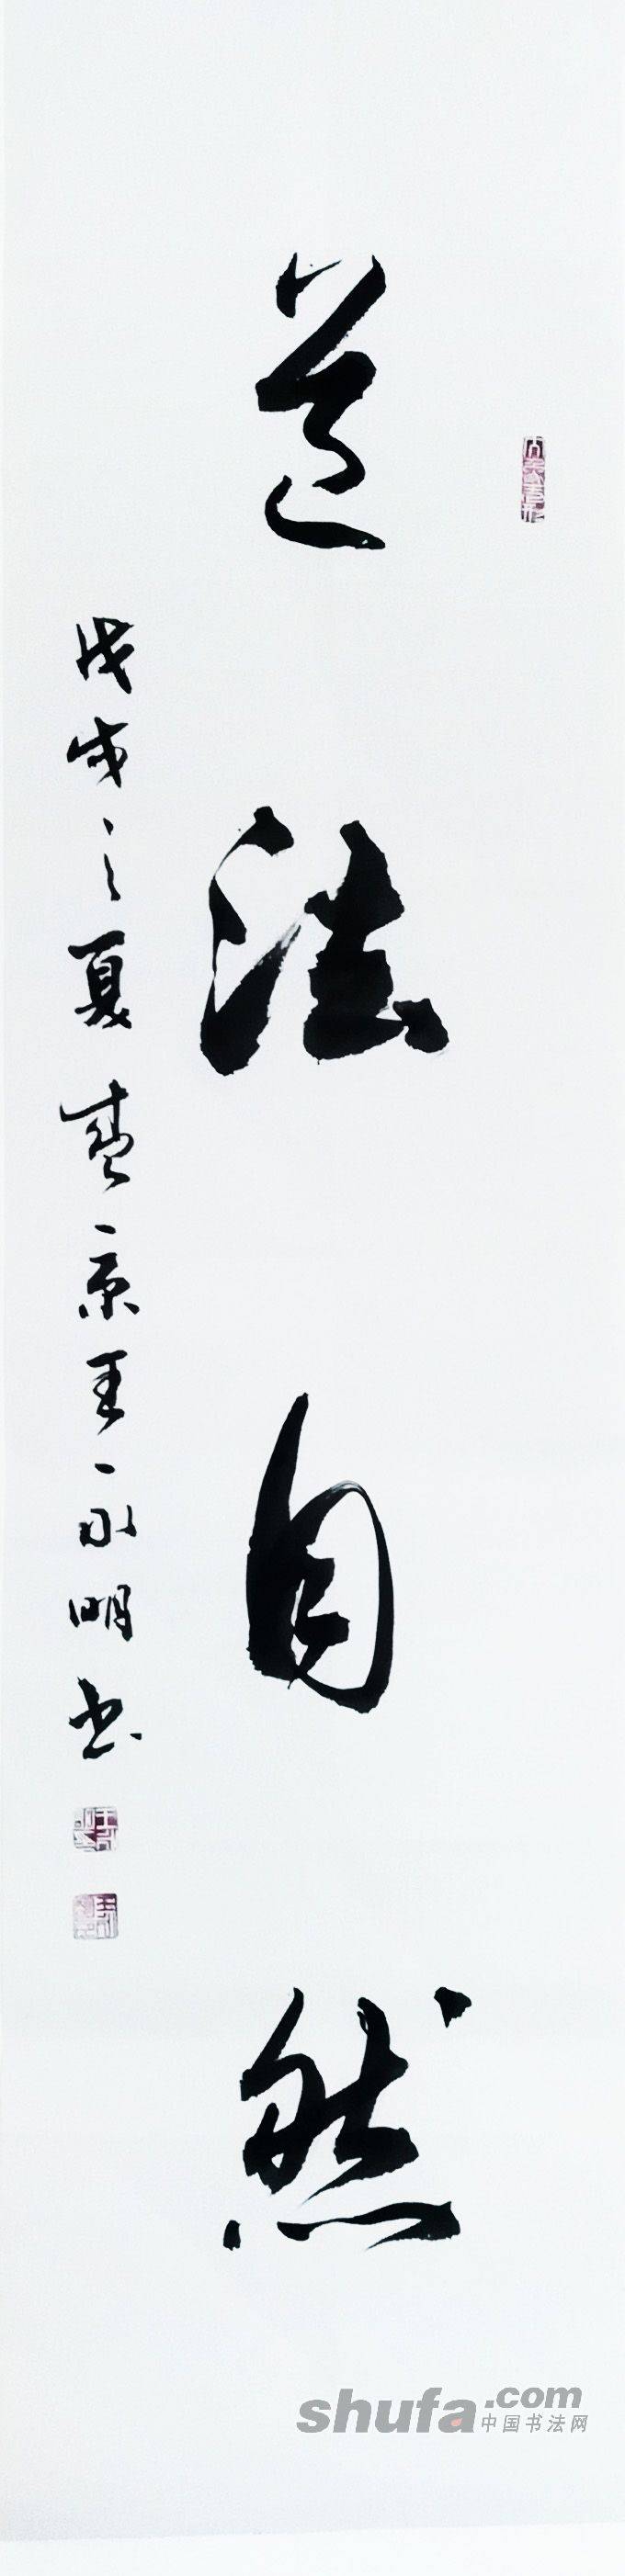 道法自然
戊戌之夏 燕京王永明书
shufa.com
中国书法网